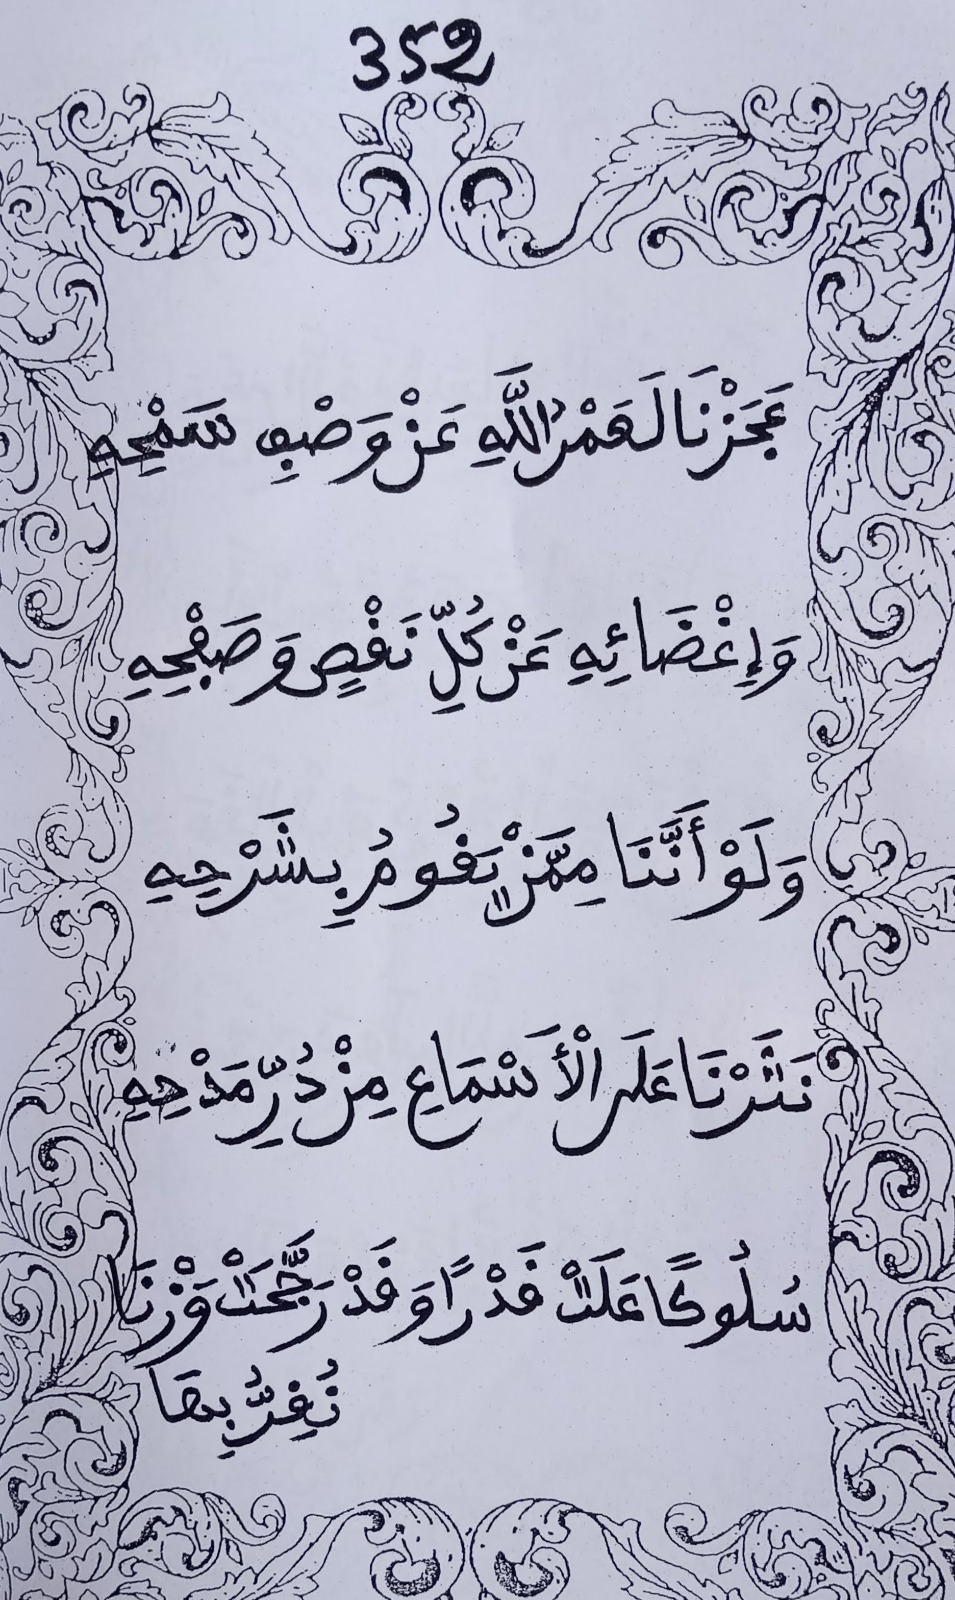 352
عَجَزْنَا لَعَمْرُ اللَّهِ عَنْ وَصْفِ سَمْحِهِ
وَإِغْضَائِهِ عَنْ كُلِّ نَقْصٍ وَصَفْحِهِ
وَلَوْ أَنَّنَا مِمَّنْ يَقُومُ بِشَرْحِهِ
نَثَرْنَا عَلَى الْأَسْمَاعِ مِنْ دُرِّ مَدْحِهِ
سُلُوكًا عَلَتْ قَدْرًا وَقَدْ رَجَّحَتْ وَزْنَا
نُقِرُّ بِهَا